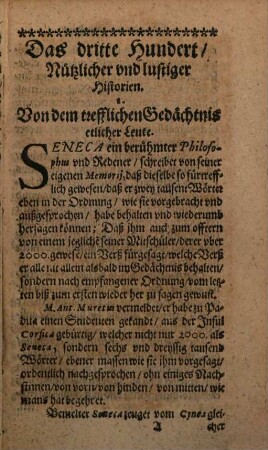 Das dritte Hundert/
Nützlicher vnd lustiger
Historien.
1.
Von dem trefflichen Gedächtnis
etlicher Leute.
SENECA ein berühmter Philoso-
phus vnd Redener / schreibet von seiner
eigenen Memorij, daß dieselbe so fürtreff-
lich gewesen / daß er zwey tausent Wörter
eben in der Ordnung / wie sie vorgebracht vnd
außgesprochen / habe behalten vnd wiederumb
hersagen können; Daß ihm auch zum offtern
von einem jeglichē seiner Mitschüler / derer vber
2000. gewesē / ein Verß fürgesagt / welche Verß
er alle alßbald im Gedächtnis behalten /
sondern nach empfangener Ordnung / vom letz-
ten biß zum ersten wieder her zu sagen gewust.
M. Ant. Muretus vermeldet / er habe zu Pa-
dua einen Studenten gekandt / aus der Insul
Corsica gebürtig / welcher nicht nur 2000. als
Seneca, sondern sechs vnd dreyssig tausend
Wörter / ebener massen wie sie ihm vorgesagt /
ordentlich nachgesprochen / ohn einiges Nach-
sinnen / von vorn / von hinden / von mitten / wie
mans hat begehret.
Bemelter Seneca zeuget vom Cynea glei-
A cher